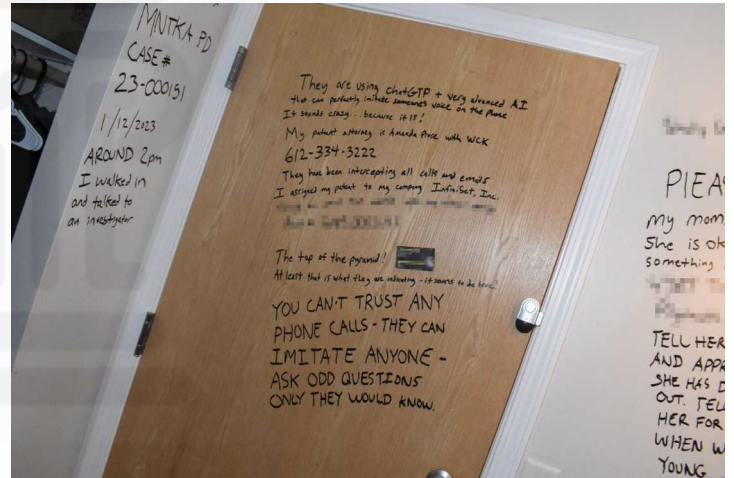 MNTKA PD
CASE #
23-000151
1/12/2023
AROUND 2pm
I walked in
and talked to
an investigator
They are using ChatGTP + very advanced AI
that can perfectly imitate someones voice on the phone
It sounds crazy... because it is!
My patent attorney is Amanda Prose with WCK
612-334-3222
They have been intercepting all calls and emails
I assigned my patent to my company InfiniSet, Inc.
The top of the pyramid!
At least that is what they are indicating - it seems to be here
YOU CAN'T TRUST ANY
PHONE CALLS - THEY CAN
IMITATE ANYONE -
ASK ODD QUESTIONS
ONLY THEY WOULD KNOW.
PlEA
My mom
She is ok
something
TELL HER
AND APPR
SHE HAS D
OUT. TELL
HER FOR
WHEN W
YOUNG